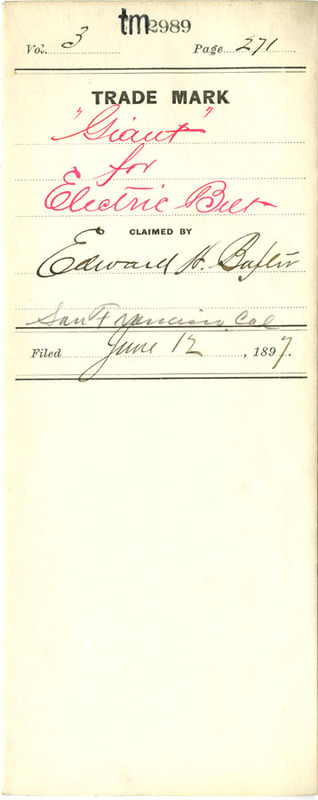 tm 2989
Vol. 3 Page 271
TRADE MARK
"Giant"
for
Electric Belt
CLAIMED BY
Edward H.
San Francisco, Cal
Filed June 12, 1897.